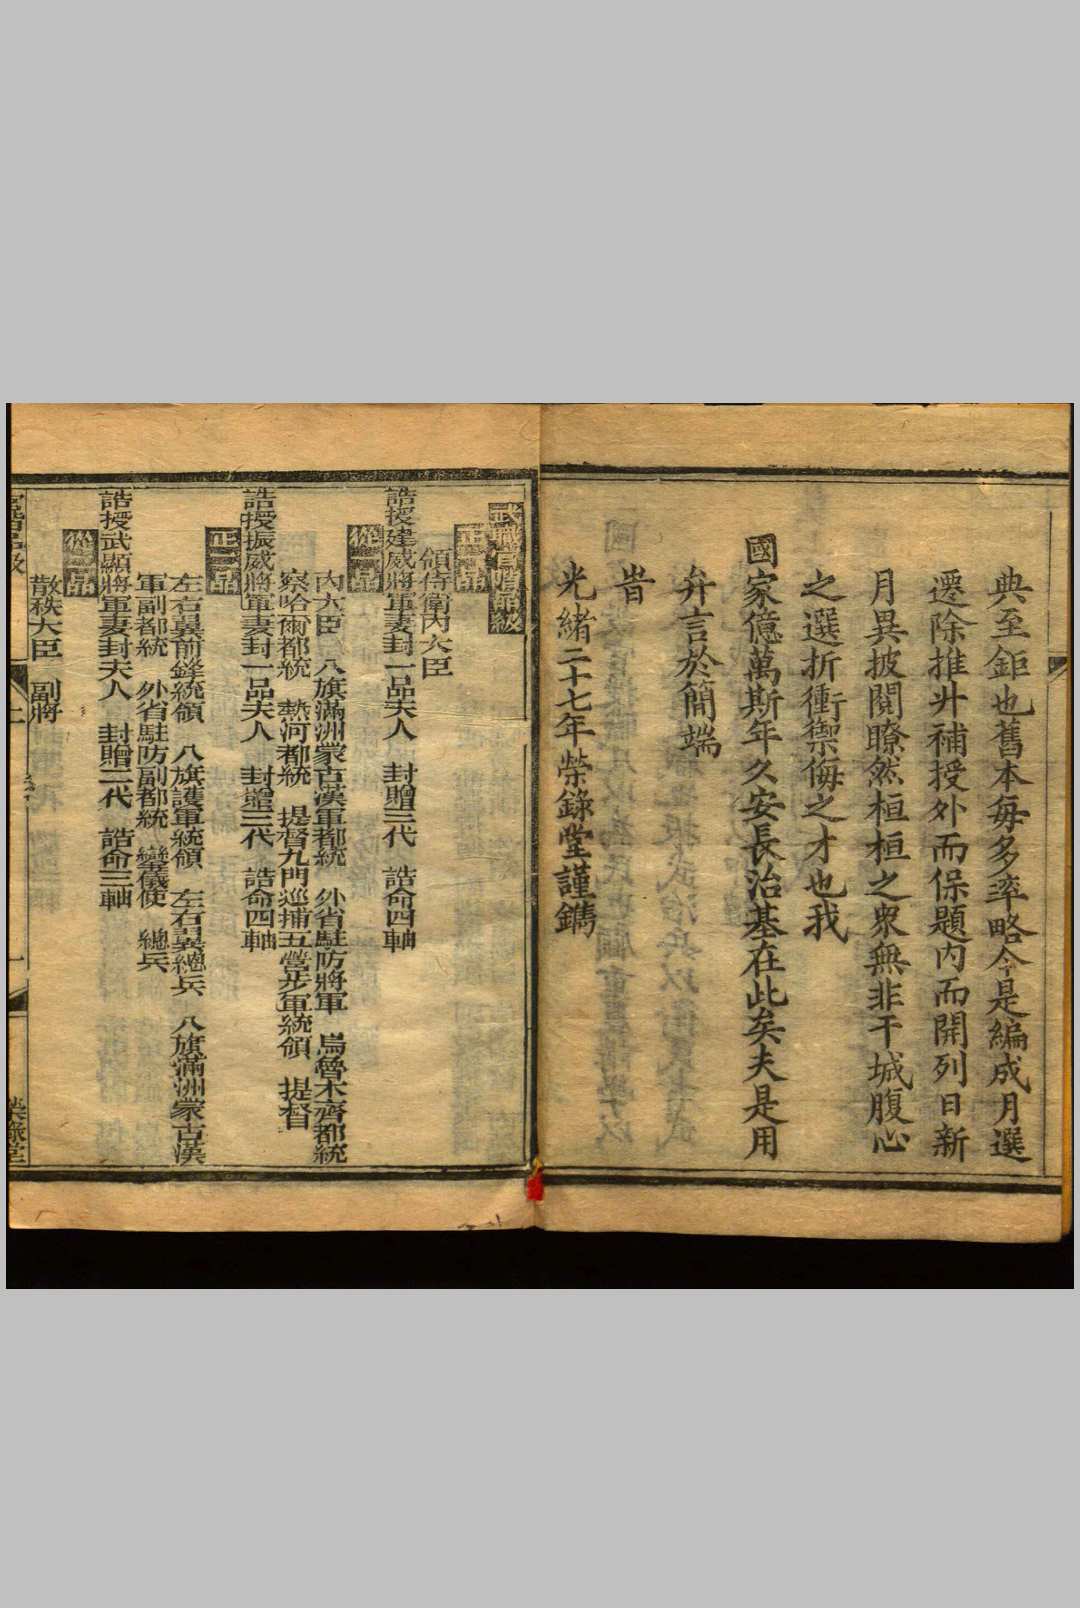 典至鉅也舊本每多率略今是編成月選
遷除推升補授外而保題內而開列日新
月異披閱瞭然桓桓之衆無非干城腹心
之選折衝禦侮之才也我
國家億萬斯年久安長治基在此矣夫是用
弁言於簡端
旹
光緒二十七年榮錄堂謹鐫
武職官階品級
正一品
領侍衛內大臣
誥授建威將軍妻封一品夫人 封贈三代 誥命四軸
從一品
內大臣 八旗滿洲蒙古漢軍都統 外省駐防將軍 烏魯木齊都統
察哈爾都統 熱河都統 提督九門巡捕五營步軍統領 提督
誥授振威將軍妻封一品夫人 封贈三代 誥命四軸
正二品
左右翼前鋒統領 八旗護軍統領 左右翼總兵 八旗滿洲蒙古漢
軍副都統 外省駐防副都統 鑾儀使 總兵
誥授武顯將軍妻封夫人 封贈二代 誥命三軸
從二品
散秩大臣 副將
官階品級
上
一
榮錄堂